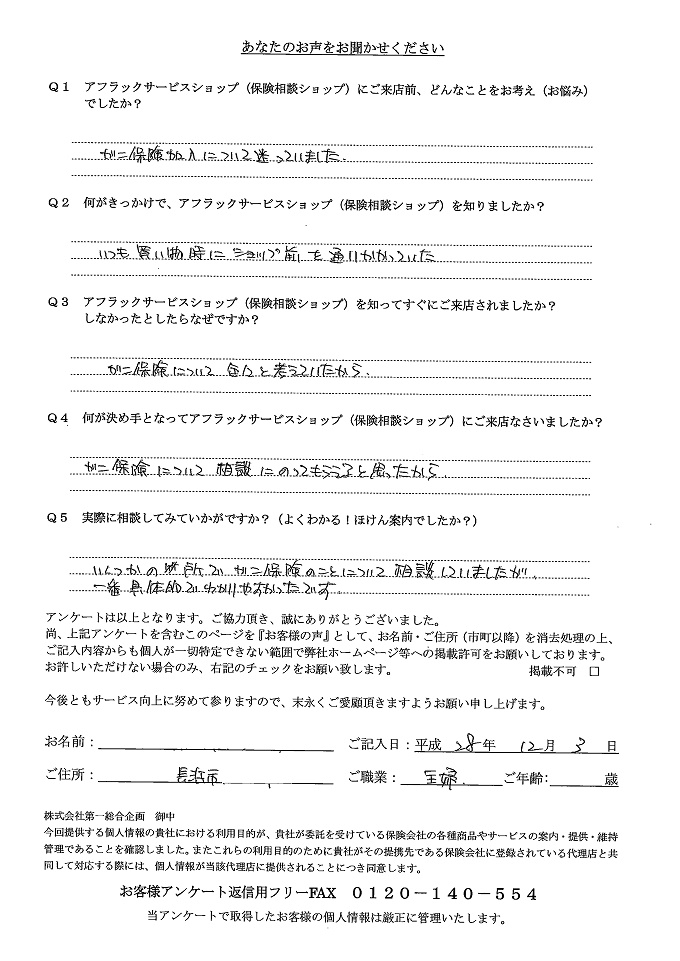 あなたのお声をお聞かせください
Q1 アフラックサービスショップ（保険相談ショップ）にご来店前、どんなことをお考え（お悩み）
でしたか？
がン保険加入について迷っていました。
Q2 何がきっかけで、アフラックサービスショップ（保険相談ショップ）を知りましたか？
いつも買い物時にショップ前を通りかかっていた
Q3 アフラックサービスショップ（保険相談ショップ）を知ってすぐにご来店されましたか？
しなかったとしたらなぜですか？
がン保険について色々と考えていたから。
Q4 何が決め手となってアフラックサービスショップ（保険相談ショップ）にご来店なさいましたか？
がン保険について相談にのってもらえると思ったから。
Q5 実際に相談してみていかがですか？（よくわかる！ほけん案内でしたか？）
いくつかの場所でがン保険のことについて相談していましたが、
一番具体的でわかりやすかったです
アンケートは以上となります。ご協力頂き、誠にありがとうございました。
尚、上記アンケートを含むこのページを『お客様の声』として、お名前・ご住所（市町以降）を消去処理の上、
ご記入内容からも個人が一切特定できない範囲で弊社ホームページ等への掲載許可をお願いしております。
お許しいただけない場合のみ、右記のチェックをお願い致します。 掲載不可 □
今後ともサービス向上に努めて参りますので、末永くご愛顧頂きますようお願い申し上げます。
お名前： ご記入日：平成 28 年 12 月 3 日
ご住所： 長浜市 ご職業： 主婦 ご年齢： 歳
株式会社第一総合企画 御中
今回提供する個人情報の貴社における利用目的が、貴社が委託を受けている保険会社の各種商品やサービスの案内・提供・維持
管理であることを確認しました。またこれらの利用目的のために貴社がその提携先である保険会社に登録されている代理店と共
同して対応する際には、個人情報が当該代理店に提供されることにつき同意します。
お客様アンケート返信用フリーFAX 0120－140－554
当アンケートで取得したお客様の個人情報は厳正に管理いたします。